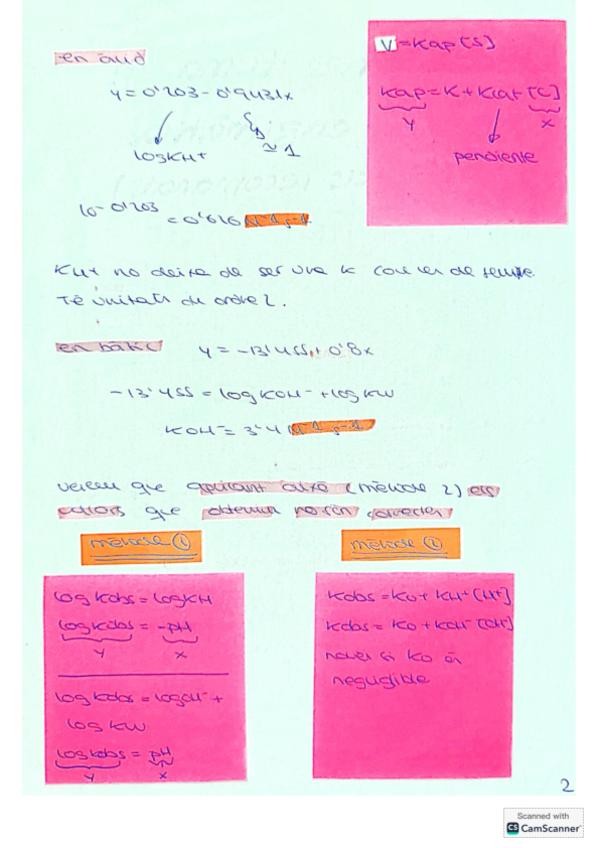 en àcid
y = 0'203 - 0'9431x
log KH+
≈ 1
10^-0'203 = 0'626 M^-1 s^-1
V = Kap [S]
Kap = K + Kcat [C]
y
x
pendiente
KH+ no deixa de ser una k com les de sempre
Té unitats de ordre 2.
en bàsic
y = -13'455 + 0'8x
-13'455 = log KOH- + log KW
KOH- = 3'4 M^-1 s^-1
veiem que aplicant això (mètode 2) els
valors que obtenim no són correctes
mètode ①
mètode ②
log Kobs = log KH
log Kobs = -pH
y
x
log Kobs = log OH- +
log KW
log Kobs = pH
y
x
Kobs = K0 + KH+ [H+]
Kobs = K0 + KOH- [OH-]
si K0 és
negligible
2
Scanned with
CS CamScanner